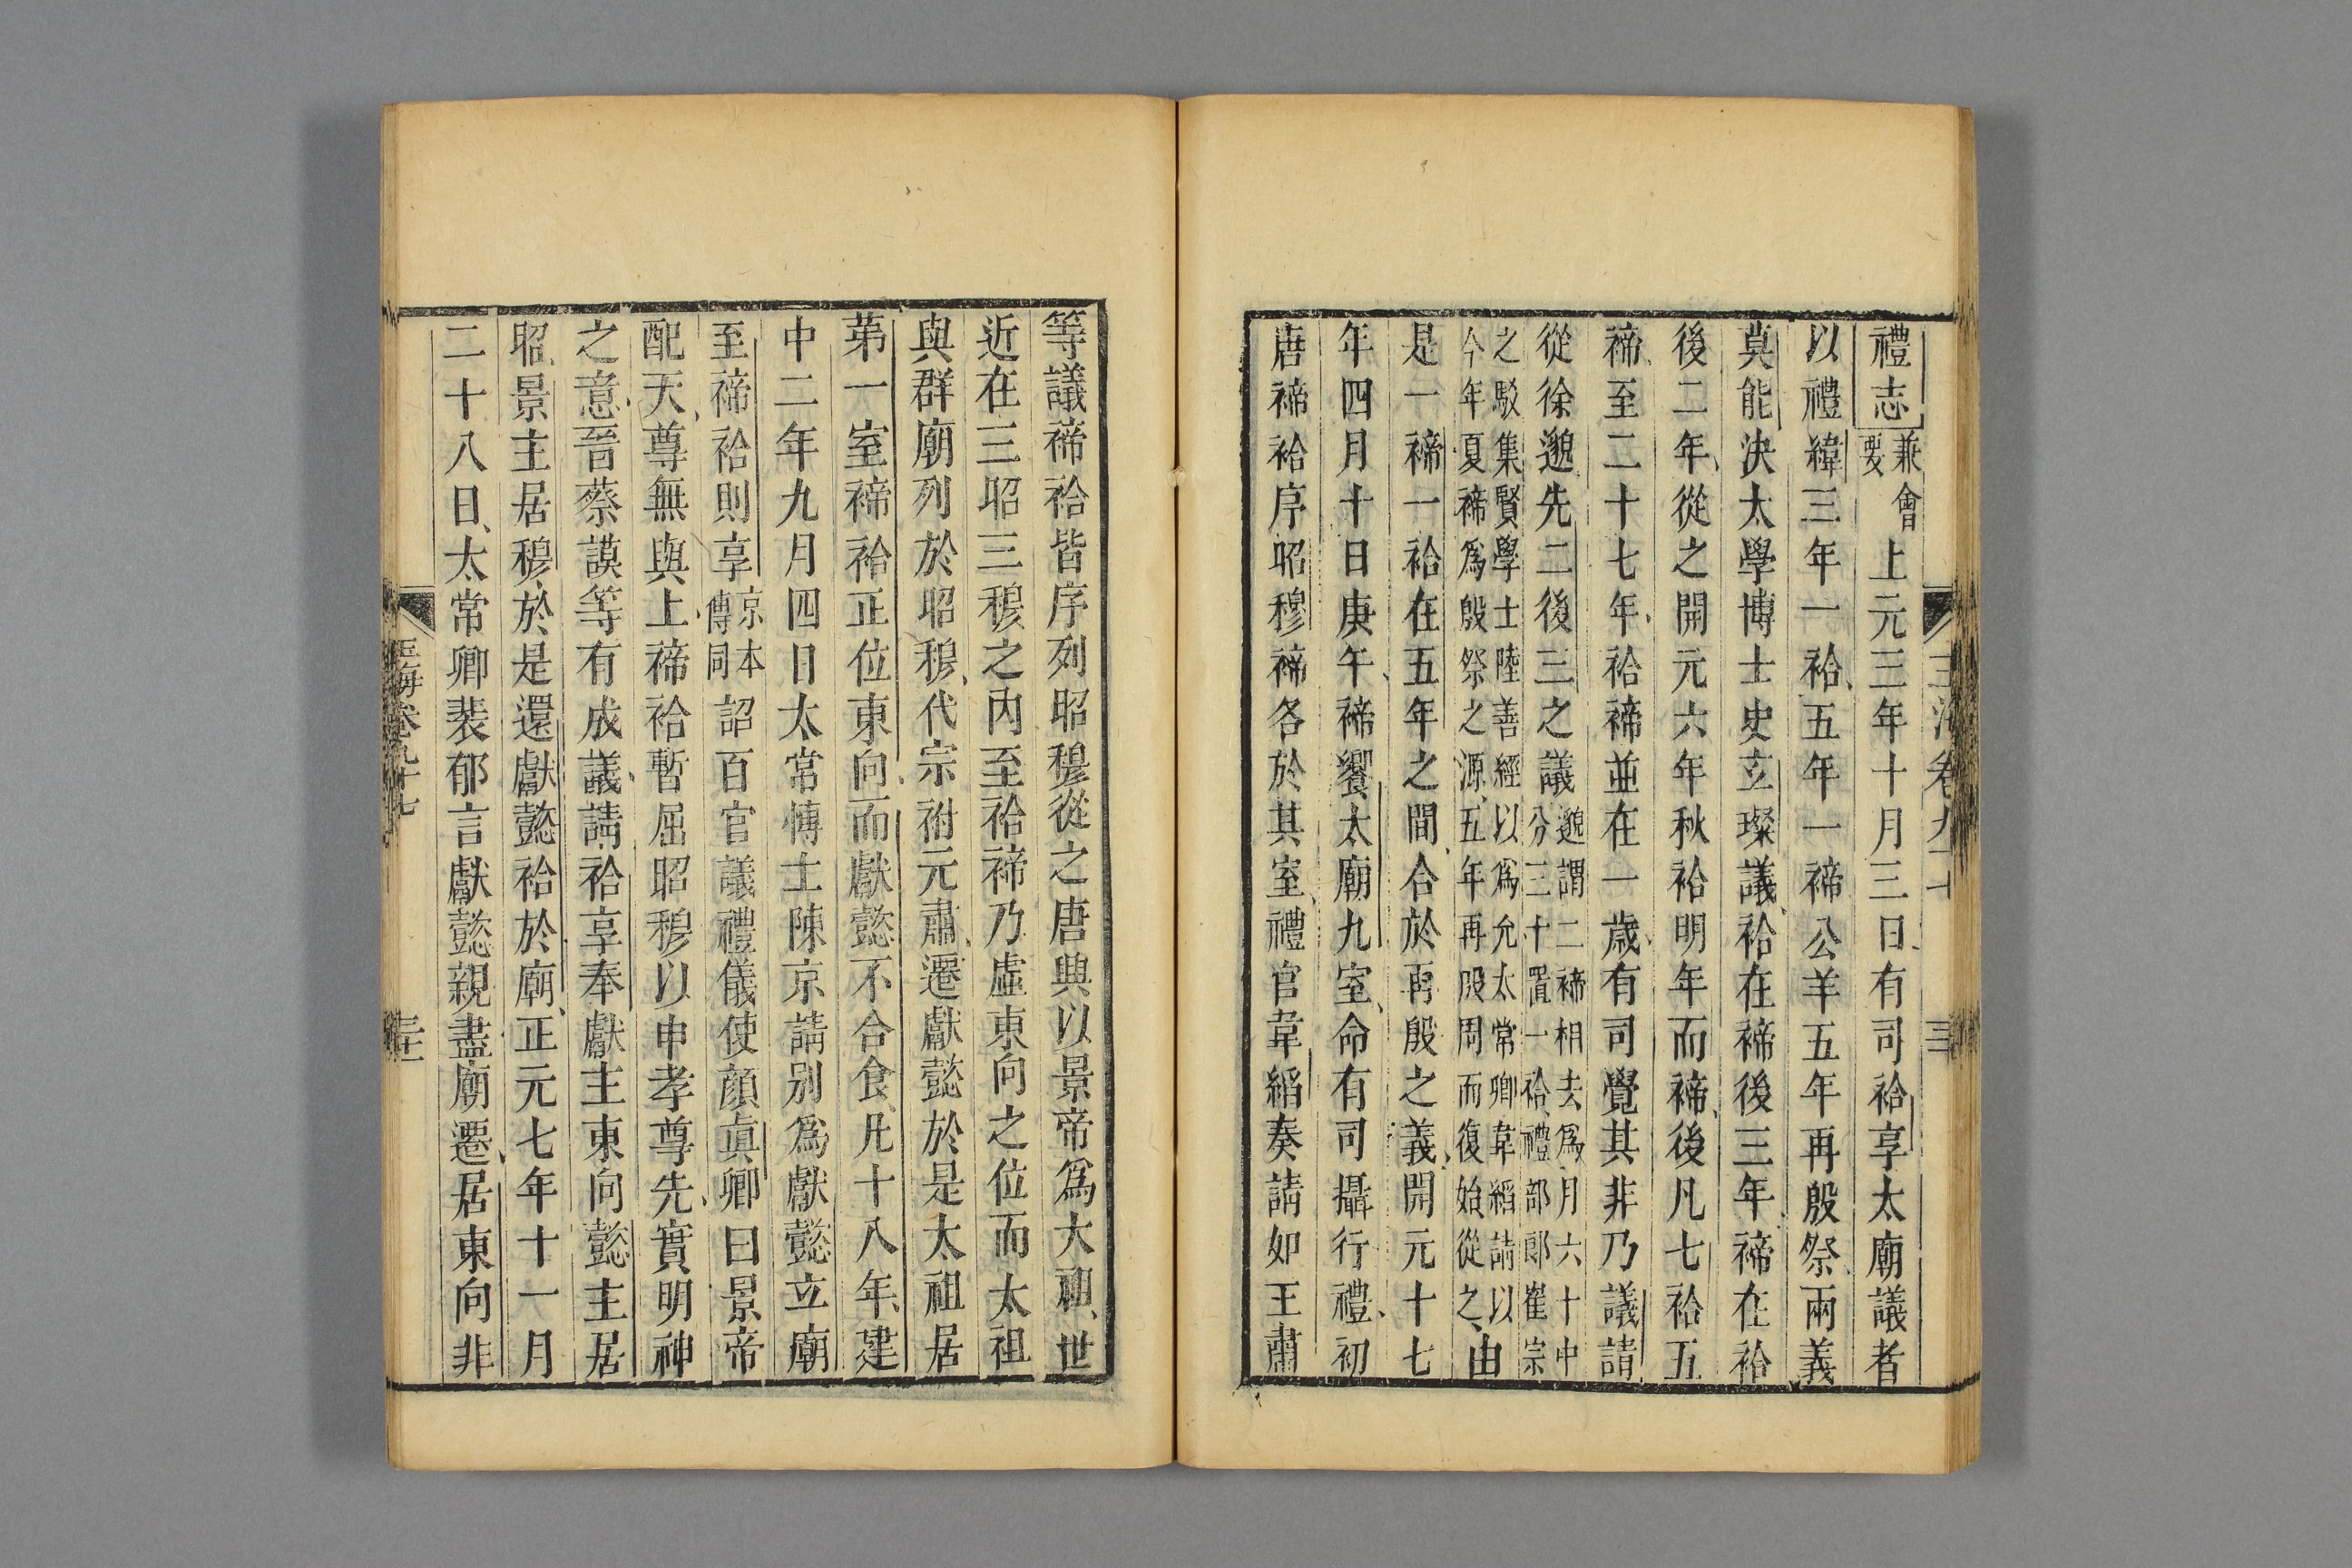 禮志兼會要上元三年十月三日有司祫享太廟議者
以禮緯三年一祫五年一禘公羊五年再殷祭兩義
莫能決太學博士史玄璨議祫在禘後三年禘在祫
後二年從之開元六年秋祫明年而禘後凡七祫五
禘至二十七年祫禘並在一歲有司覺其非乃議請
從徐邈先二後三之議邈謂二禘相去為月六十中分三十置一祫禮部郎崔宗
之駮集賢學士陸善經以為允太常卿韋縚請以今年夏禘為殷祭之源五年再殷周而復始從之由
是一禘一祫在五年之間合於再殷之義開元十七
年四月十日庚午禘饗太廟九室命有司攝行禮初
唐禘祫序昭穆禘各於其室禮官韋縚奏請如王肅
等議禘祫皆序列昭穆從之唐興以景帝為大祖世
近在三昭三穆之內至祫禘乃虛東向之位而太祖
與群廟列於昭穆代宗祔元肅遷獻懿於是太祖居
第一室禘祫正位東向而獻懿不合食凡十八年建
中二年九月四日太常博士陳京請別為獻懿立廟
至禘祫則享京本傳同詔百官議禮儀使顏真卿曰景帝
配天尊無與上禘祫暫屈昭穆以申孝尊先實明神
之意晉蔡謨等有成議請祫享奉獻主東向懿主居
昭景主居穆於是還獻懿祫於廟正元七年十一月
二十八日太常卿裴郁言獻懿親盡廟遷居東向非
玉海卷九十七